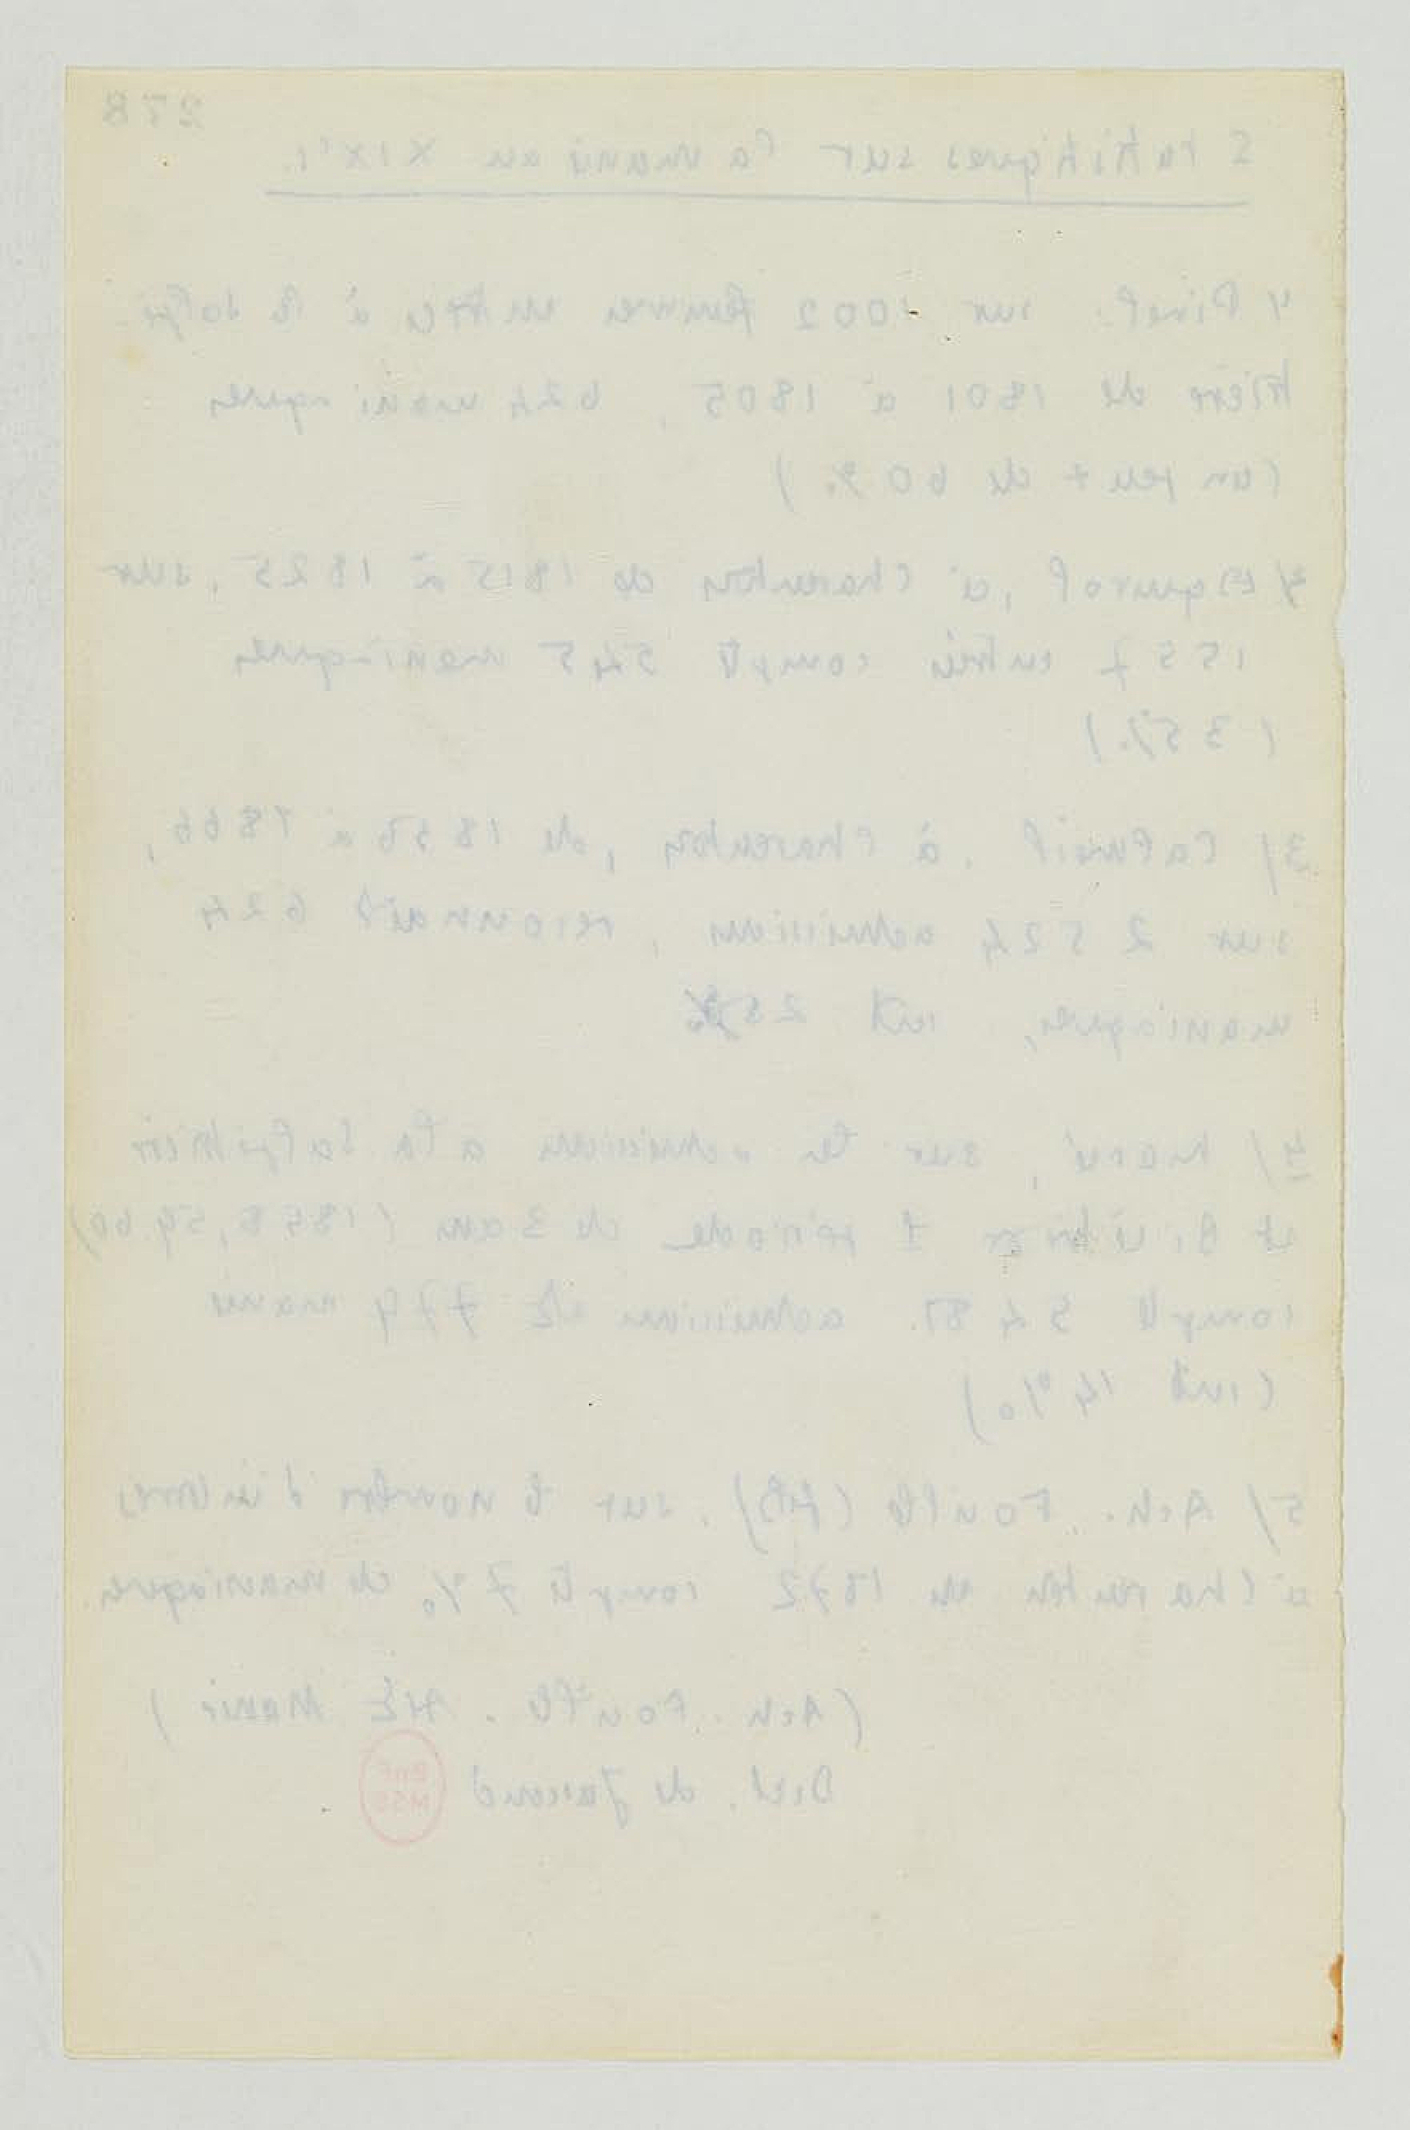 278
Statistiques sur la manie au XIXe s.
1/ Pinel. sur 1002 femmes entrées à la Salpê-
trière de 1801 à 1805, 624 maniaques
(un peu + de 60 %.)
2/ Esquirol, à Charenton de 1815 à 1825, sur
1557 entrées compte 545 maniaques
(35%.)
3/ Calmeil, à Charenton, de 1856 à 1866,
sur 2524 admissions, reconnaît 624
maniaques, soit 25%
4/ Marcé, sur les admissions à la Salpêtrière
et Bicêtre période de 3 ans (1858, 59, 60)
compte 5481 admissions et 779 manies
(soit 14%)
5/ Ach. Foville (fils), sur le nombre d'entrées
à Charenton en 1872 compte 7% de maniaques.
(Ach. Foville. Art Manie)
Dict. de Jaccoud
BnF
MSS